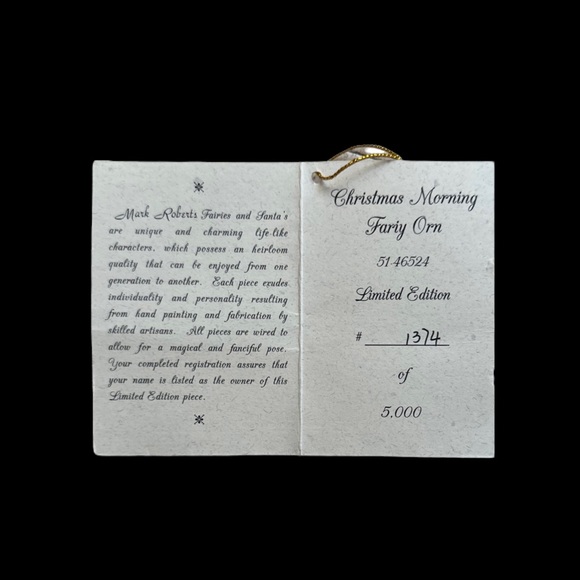 Mark Roberts Fairies and Santa's
are unique and charming life-like
characters, which possess an heirloom
quality that can be enjoyed from one
generation to another. Each piece exudes
individuality and personality resulting
from hand painting and fabrication by
skilled artisans. All pieces are wired to
allow for a magical and fanciful pose.
Your completed registration assures that
your name is listed as the owner of this
Limited Edition piece.
Christmas Morning
Fariy Orn
51-46524
Limited Edition
# 1374
of
5,000